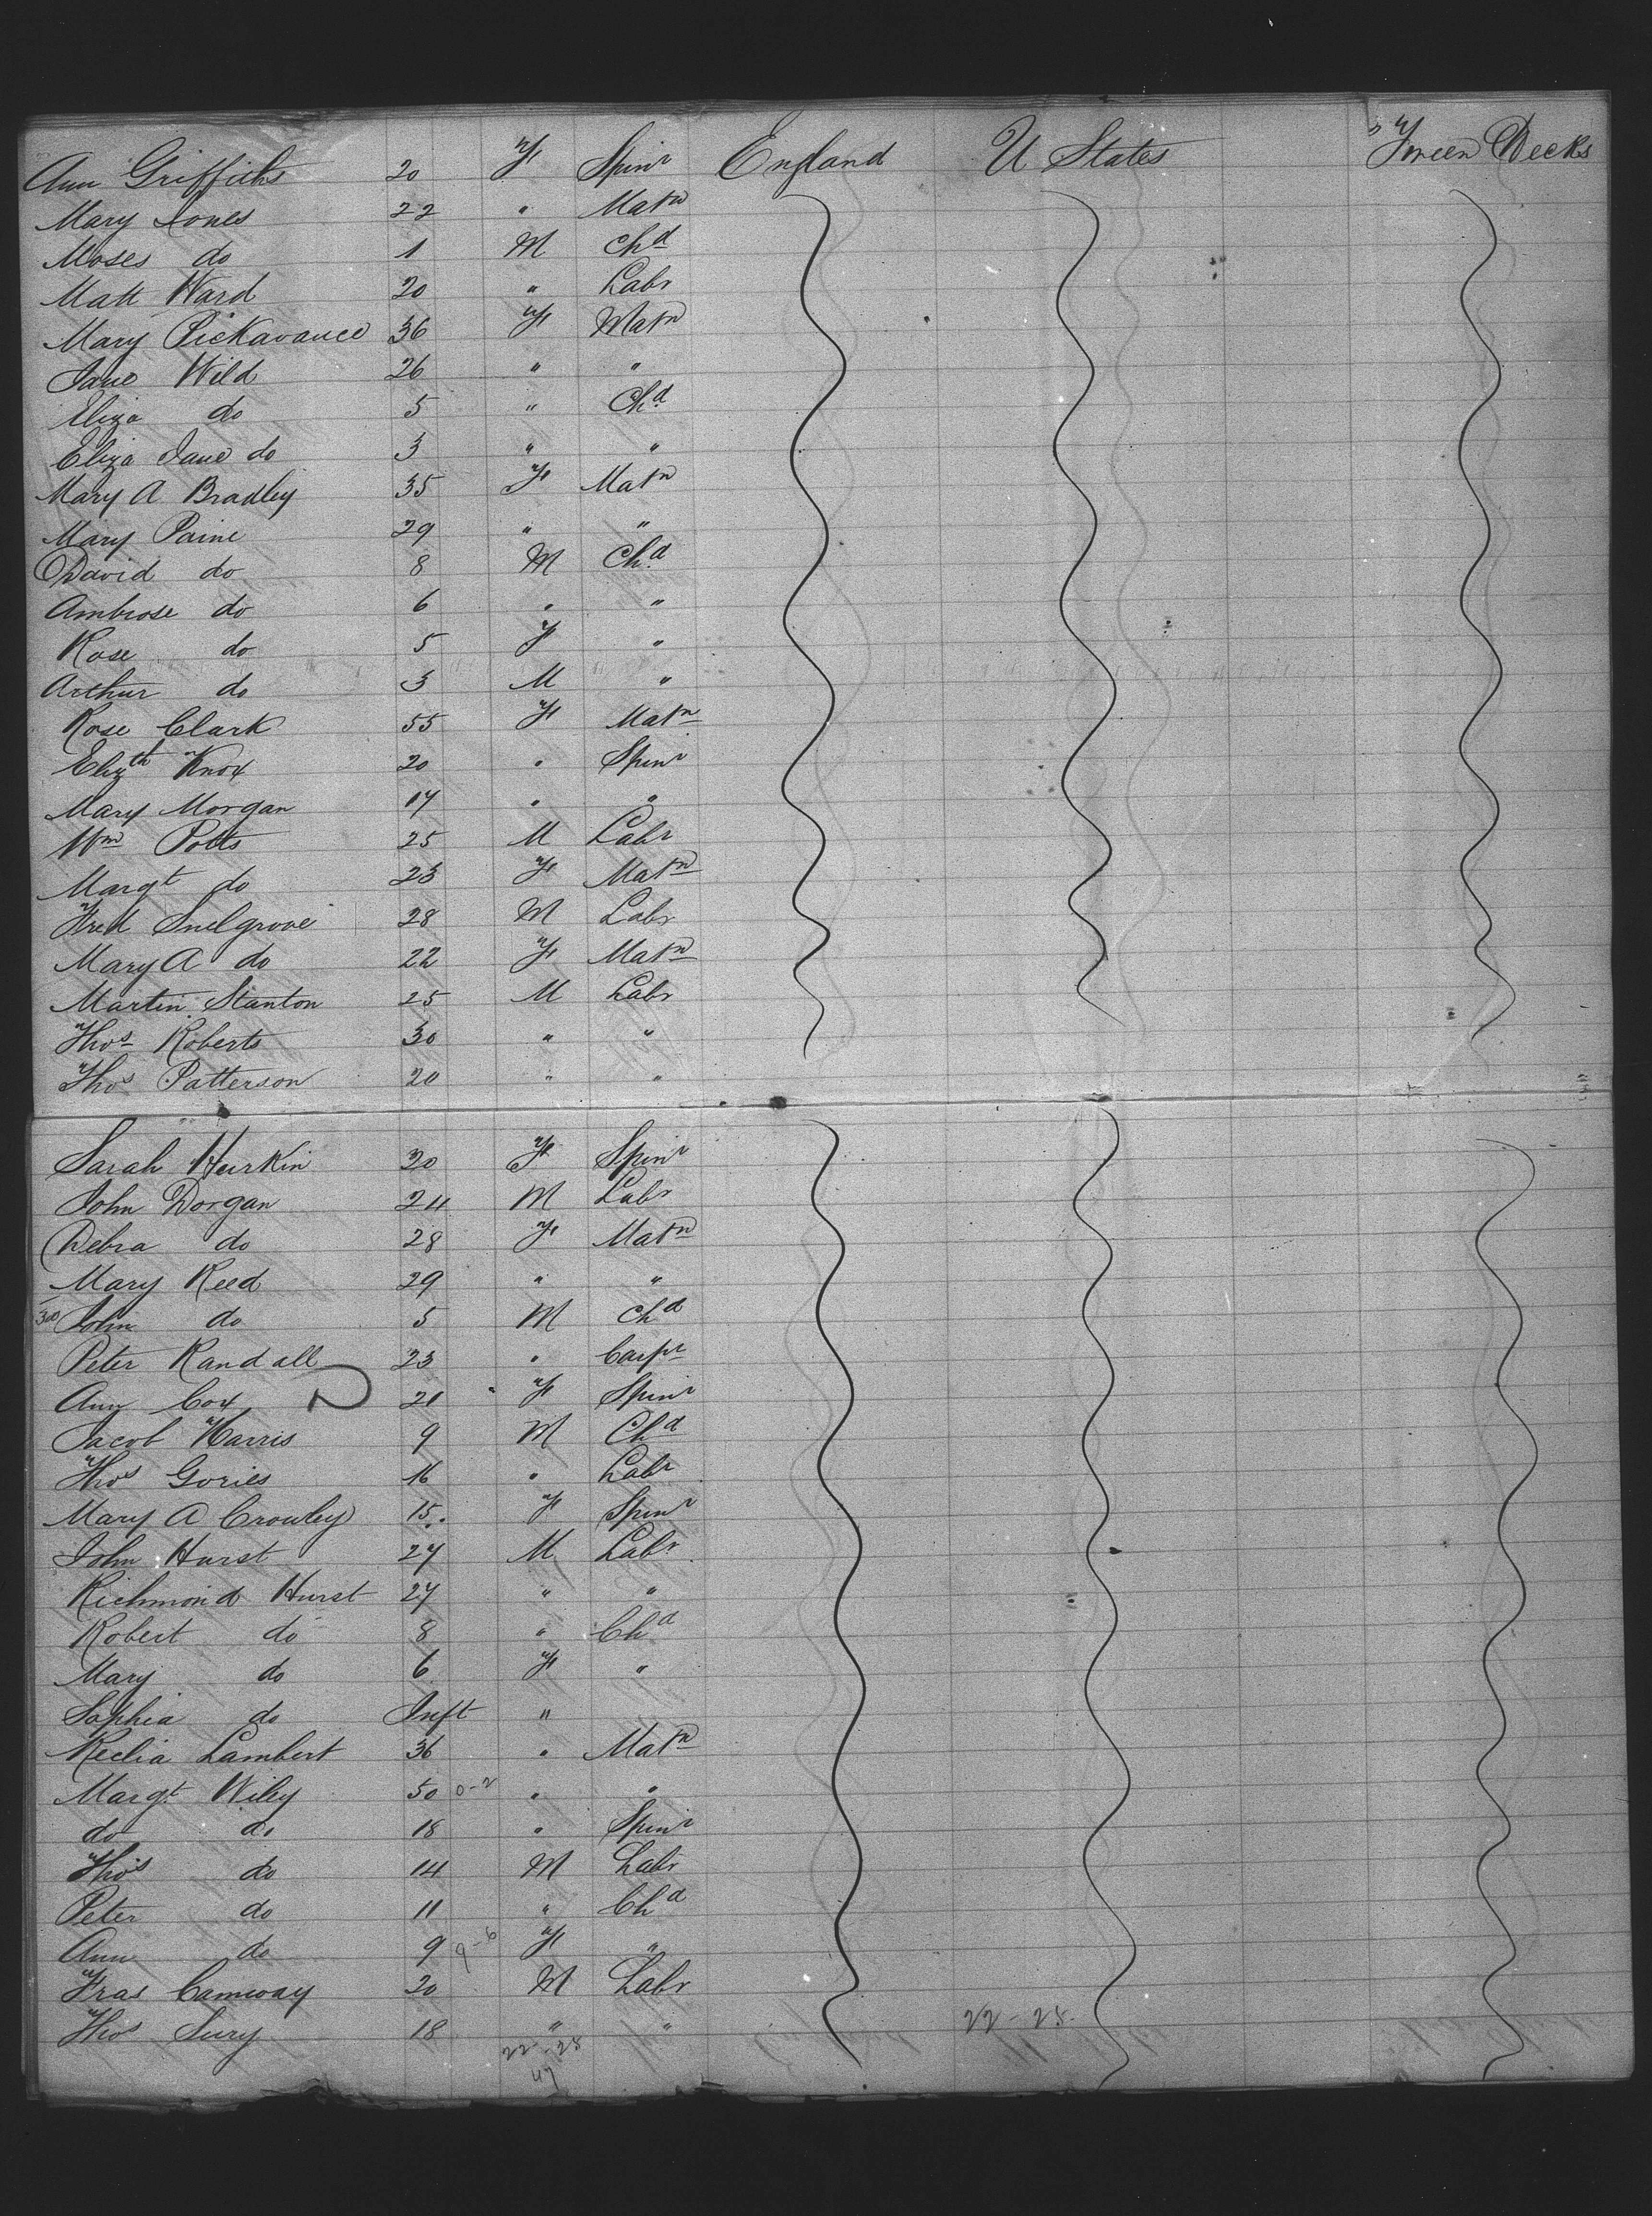 Ann Griffiths 20 F Spinr England U States Tween Decks
Mary Jones 22 " Matn
Moses do 1 M Chd
Matt Ward 20 " Labr
Mary Pickavance 36 F Matn
Jane Wild 26 " "
Eliza do 5 " Chd
Eliza Jane do 3 " "
Mary A Bradley 35 F Matn
Mary Paine 29 " "
David do 8 M Chd
Ambrose do 6 " "
Rose do 5 F "
Arthur do 3 M "
Rose Clark 55 F Matn
Elizth Knox 20 " Spinr
Mary Morgan 17 " "
Wm Potts 25 M Labr
Margt do 23 F Matn
Fred Snelgrove 28 M Labr
Mary A do 22 F Matn
Martin Stanton 25 M Labr
Thos Roberts 30 " "
Thos Patterson 20 " "
Sarah Hurkin 20 F Spinr
John Dorgan 24 M Labr
Debra do 28 F Matn
Mary Reed 29 " "
300 John do 5 M Chd
Peter Randall 23 " Carpr
Ann Cox 21 " F Spinr
Jacob Harris 9 M Chd
Thos Gories 16 " Labr
Mary A Crowley 15 F Spinr
John Hurst 27 M Labr
Richmond Hurst 27 " "
Robert do 8 " Chd
Mary do 6 F "
Sophia do Inft "
Lambert 36 " Matn
Margt Wiley 50 0-2 " "
do do 18 " Spinr
Thos do 14 M Labr
Peter do 11 " Chd
Ann do 9 9-6 F "
Fras 20 M Labr
Thos 18 " "
22-25 22-25
47